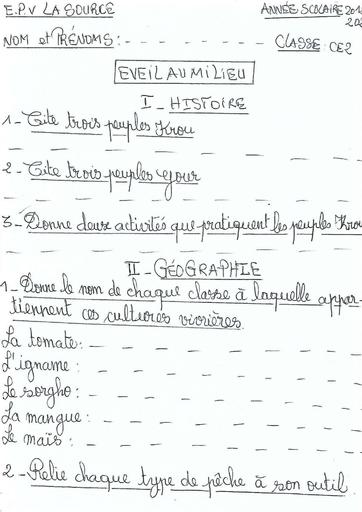 E.P.V LA SOURCE
ANNÉE SCOLAIRE
NOM et PRÉNOMS: CLASSE: CE2
EVEIL AU MILIEU
I - HISTOIRE
1 - Cite trois peuples Krou
2 - Cite trois peuples Gour
3 - Donne deux activités que pratiquent les peuples Krou
II - GÉOGRAPHIE
1 - Donne le nom de chaque classe à laquelle appar-
tiennent ces cultures vivrières
La tomate:
L'igname:
Le sorgho:
La mangue:
Le maïs:
2 - Relie chaque type de pêche à son outil